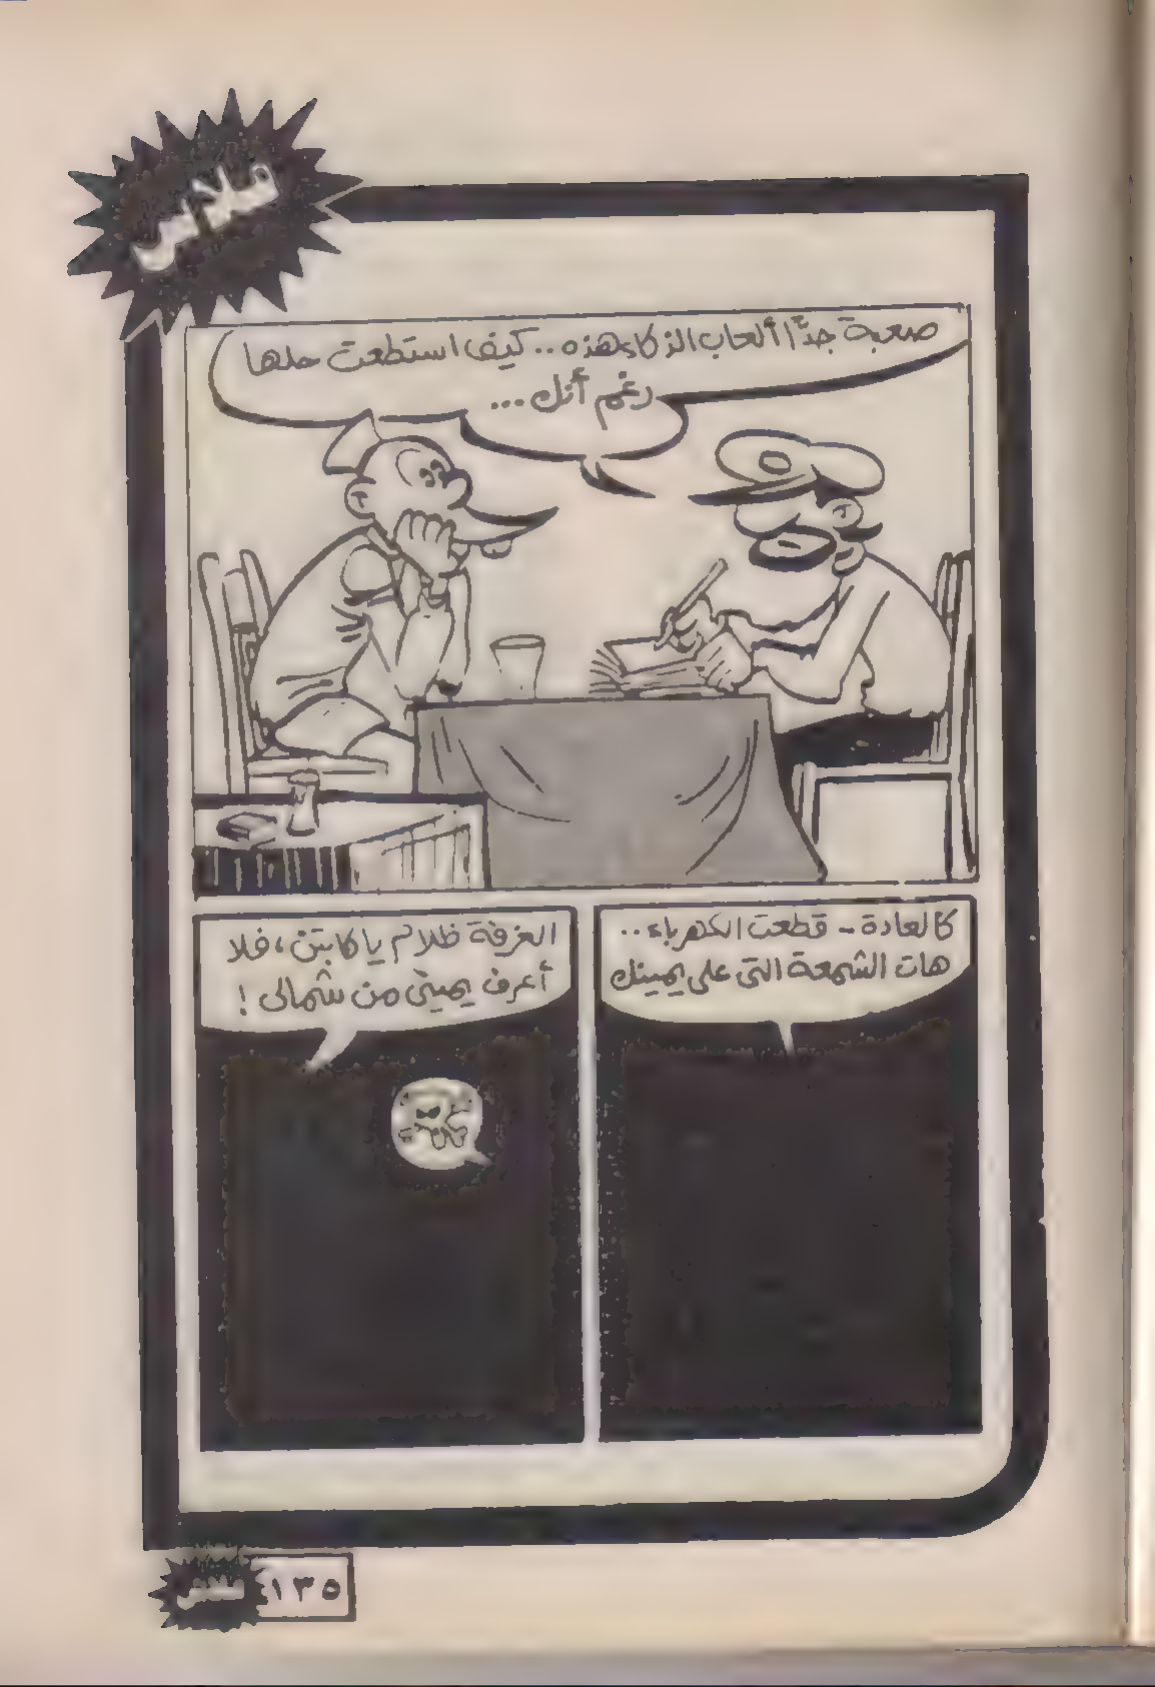 فلاس
صعبة جدًّا ألعاب الذكاء هذه.. كيف استطعت حلها
رغم أنك...
كالعادة - قطعت الكهرباء..
هات الشمعة التى على يمينك
الغرفة ظلام يا كابتن، فلا
أعرف يمينى من شمالى !
١٣٥
فلاش